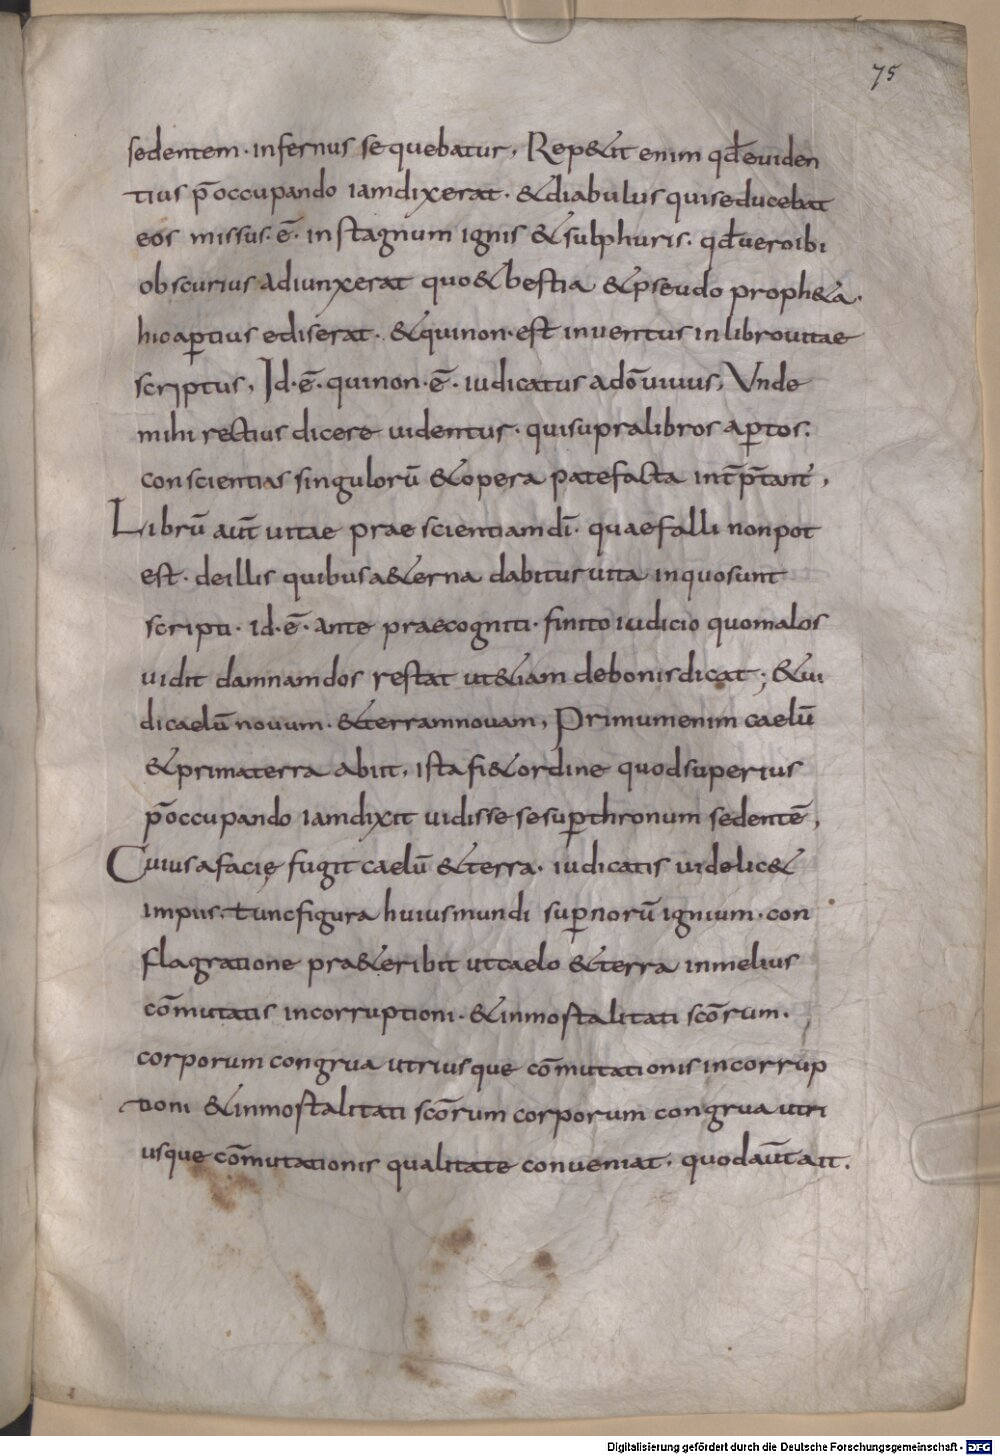 75
sedentem · infernus sequebatur, Rep&it enim qđ euiden
tius p̄occupando iamdixerat · &diabulus quiseducebat
eos missus · ē · in stagnum ignis & sulphuris · qđ uero ibi
obscurius adiunxerat quo & bestia & pseudo proph&a ·
hic aꝑtius ediserat · & quinon · est inuentus inlibrouitae
scriptus, Id · ē · quinon · ē · iudicatus adō uiuus, Vnde
mihi rectius dicere uidentur · quisupralibros aꝑtos ·
conscientias singulorū & opera patefacta int̄p̄tant̄,
Librū aut̄ uitae praescientiam dī · quae falli nonpot
est · deillis quibus a&erna dabitur uita inquo sunt
scripti · id · ē · ante praecogniti · finito iudicio quo malos
uidit damnamdos restat ut&iam debonis dicat ; & ui
di caelū nouum · & terram nouam, Primum enim caelū
& prima terra abiit, ista fi& ordine quod superius
p̄occupando iamdixit uidisse se suꝑ thronum sedentē,
Cuius afacię fugit caelū & terra · iudicatis uidelic&
impiis · tunc figura huius mundi suꝑnorū ignium · con
flagratione pra&eribit ut caelo & terra inmelius
cōmutatis incorruptioni · & inmostalitati scōrum ·
corporum congrua utriusque cōmutationis incorrup
tioni & inmostalitati scōrum corporum congrua utri
usque cōmutationis qualitate conueniat · quod aut̄ ait ·
Digitalisierung gefördert durch die Deutsche Forschungsgemeinschaft - DFG